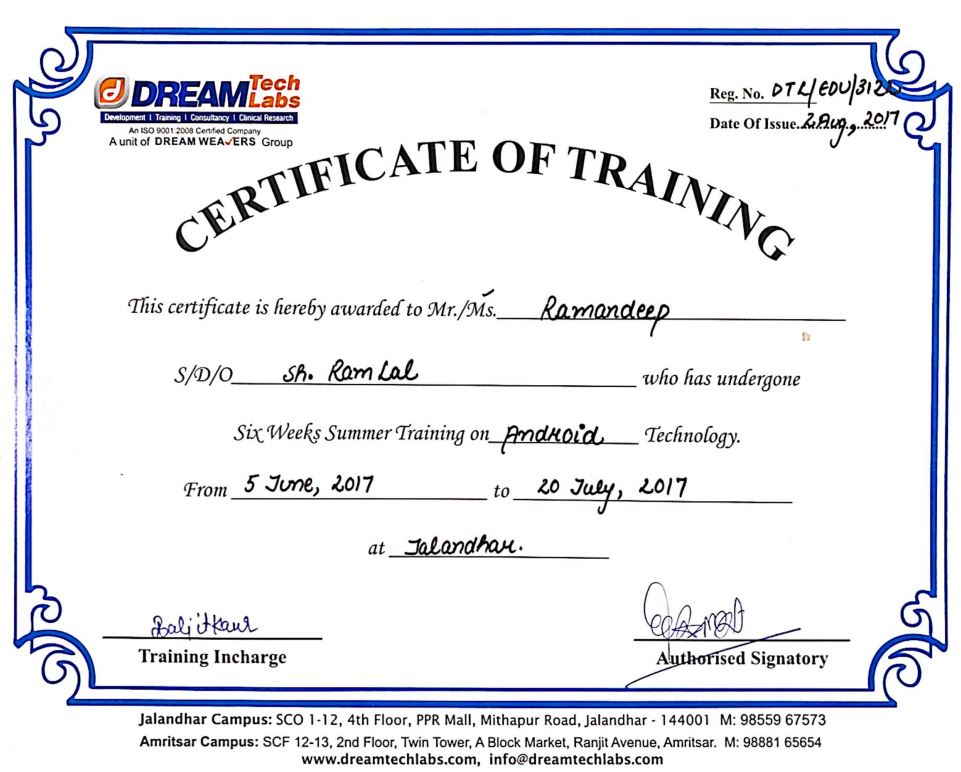 DREAM Tech Labs
Development | Training | Consultancy | Clinical Research
An ISO 9001:2008 Certified Company
A unit of DREAM WEAVERS Group
Reg. No. DTL/EDU/312
Date Of Issue..2 Aug., 2017
CERTIFICATE OF TRAINING
This certificate is hereby awarded to Mr./Ms. Ramandeep
S/D/O Sh. Ram Lal who has undergone
Six Weeks Summer Training on Android Technology.
From 5 June, 2017 to 20 July, 2017
at Jalandhar.
Baljit Kaur
Training Incharge
Authorised Signatory
Jalandhar Campus: SCO 1-12, 4th Floor, PPR Mall, Mithapur Road, Jalandhar - 144001 M: 98559 67573
Amritsar Campus: SCF 12-13, 2nd Floor, Twin Tower, A Block Market, Ranjit Avenue, Amritsar. M: 98881 65654
www.dreamtechlabs.com, info@dreamtechlabs.com